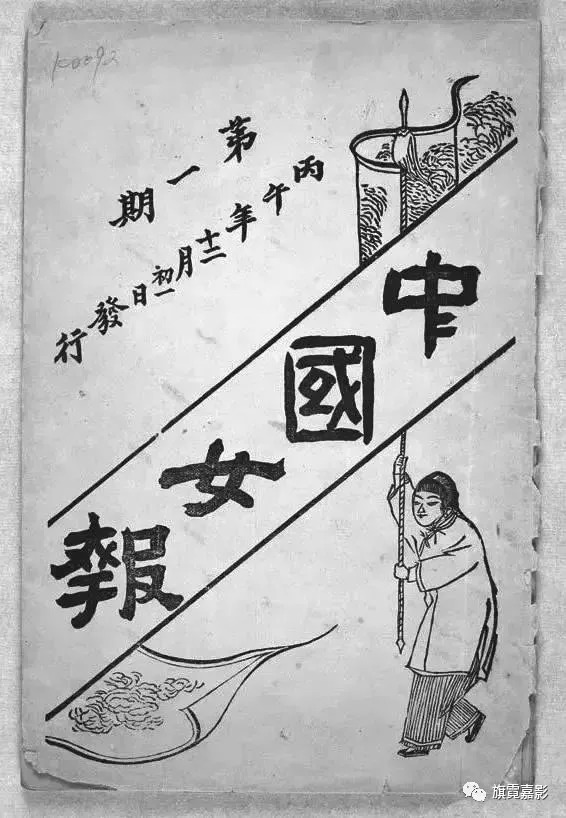 K0092
第一期
丙午年十二月初一日發行
中國女報
旗霓嘉影